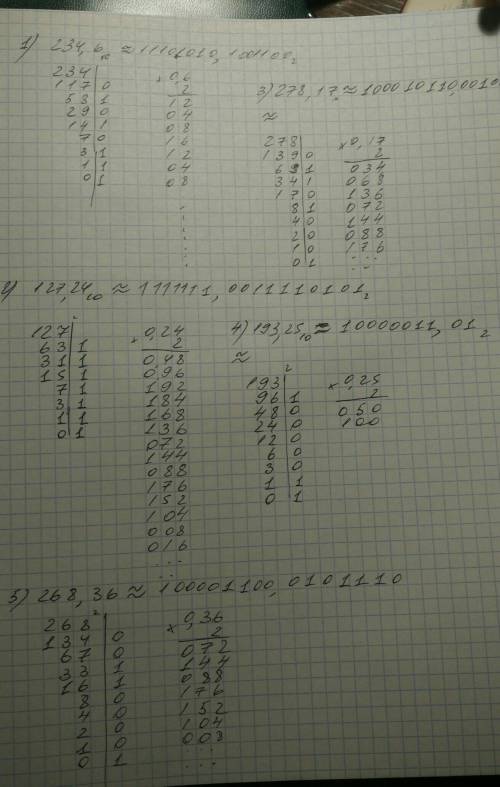 1) 234,6₁₀ ≈ 11101010,100110₂
234
117 0
58 1
29 0
14 1
7 0
3 1
1 1
0 1
× 0,6
2
12
04
08
16
12
04
08
3) 278,17 ≈ 100010110,0010
≈
278
139 0
69 1
34 1
17 0
8 1
4 0
2 0
1 0
0 1
× 0,17
2
034
068
136
072
144
088
176
...
2) 127,24₁₀ ≈ 1111111,0011110101₂
127
63 1
31 1
15 1
7 1
3 1
1 1
0 1
× 0,24
2
0,48
0,96
192
184
168
136
072
144
088
176
152
104
008
016
...
4) 193,25₁₀ ≈ 10000011,01₂
≈
193 2
96 1
48 0
24 0
12 0
6 0
3 0
1 1
0 1
× 0,25
2
050
100
5) 268,36 ≈ 100001100,0101110
268 2
134 0
67 0
33 1
16 1
8 0
4 0
2 0
1 0
0 1
× 0,36
2
072
144
088
176
152
104
008
...